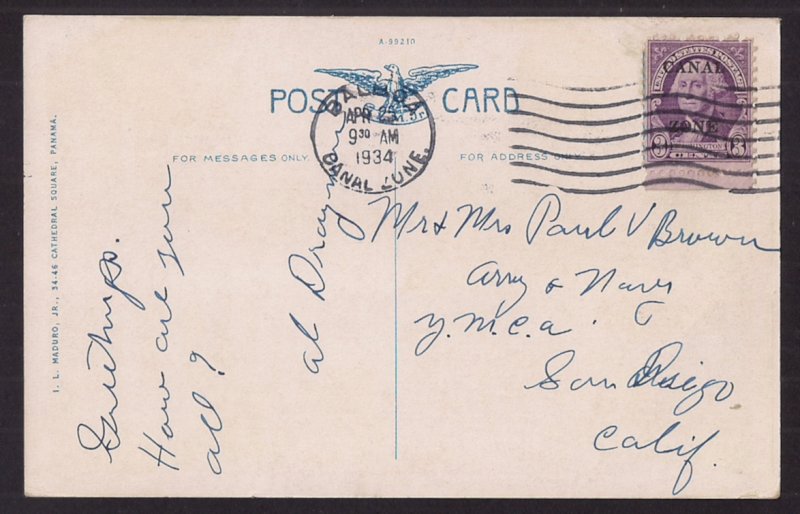 A-99210
POST CARD
BALBOA
APR
9 30 AM
1934
CANAL ZONE.
UNITED STATES POSTAGE
CANAL
ZONE
WASHINGTON
3 3
FOR MESSAGES ONLY.
FOR ADDRESS ONLY
I. L. MADURO, JR., 34-46 CATHEDRAL SQUARE, PANAMA.
Greetings.
How are you
all?
al
Mr & Mrs Paul V Brown
Army & Navy
Y.M.C.A.
San Diego
Calif.